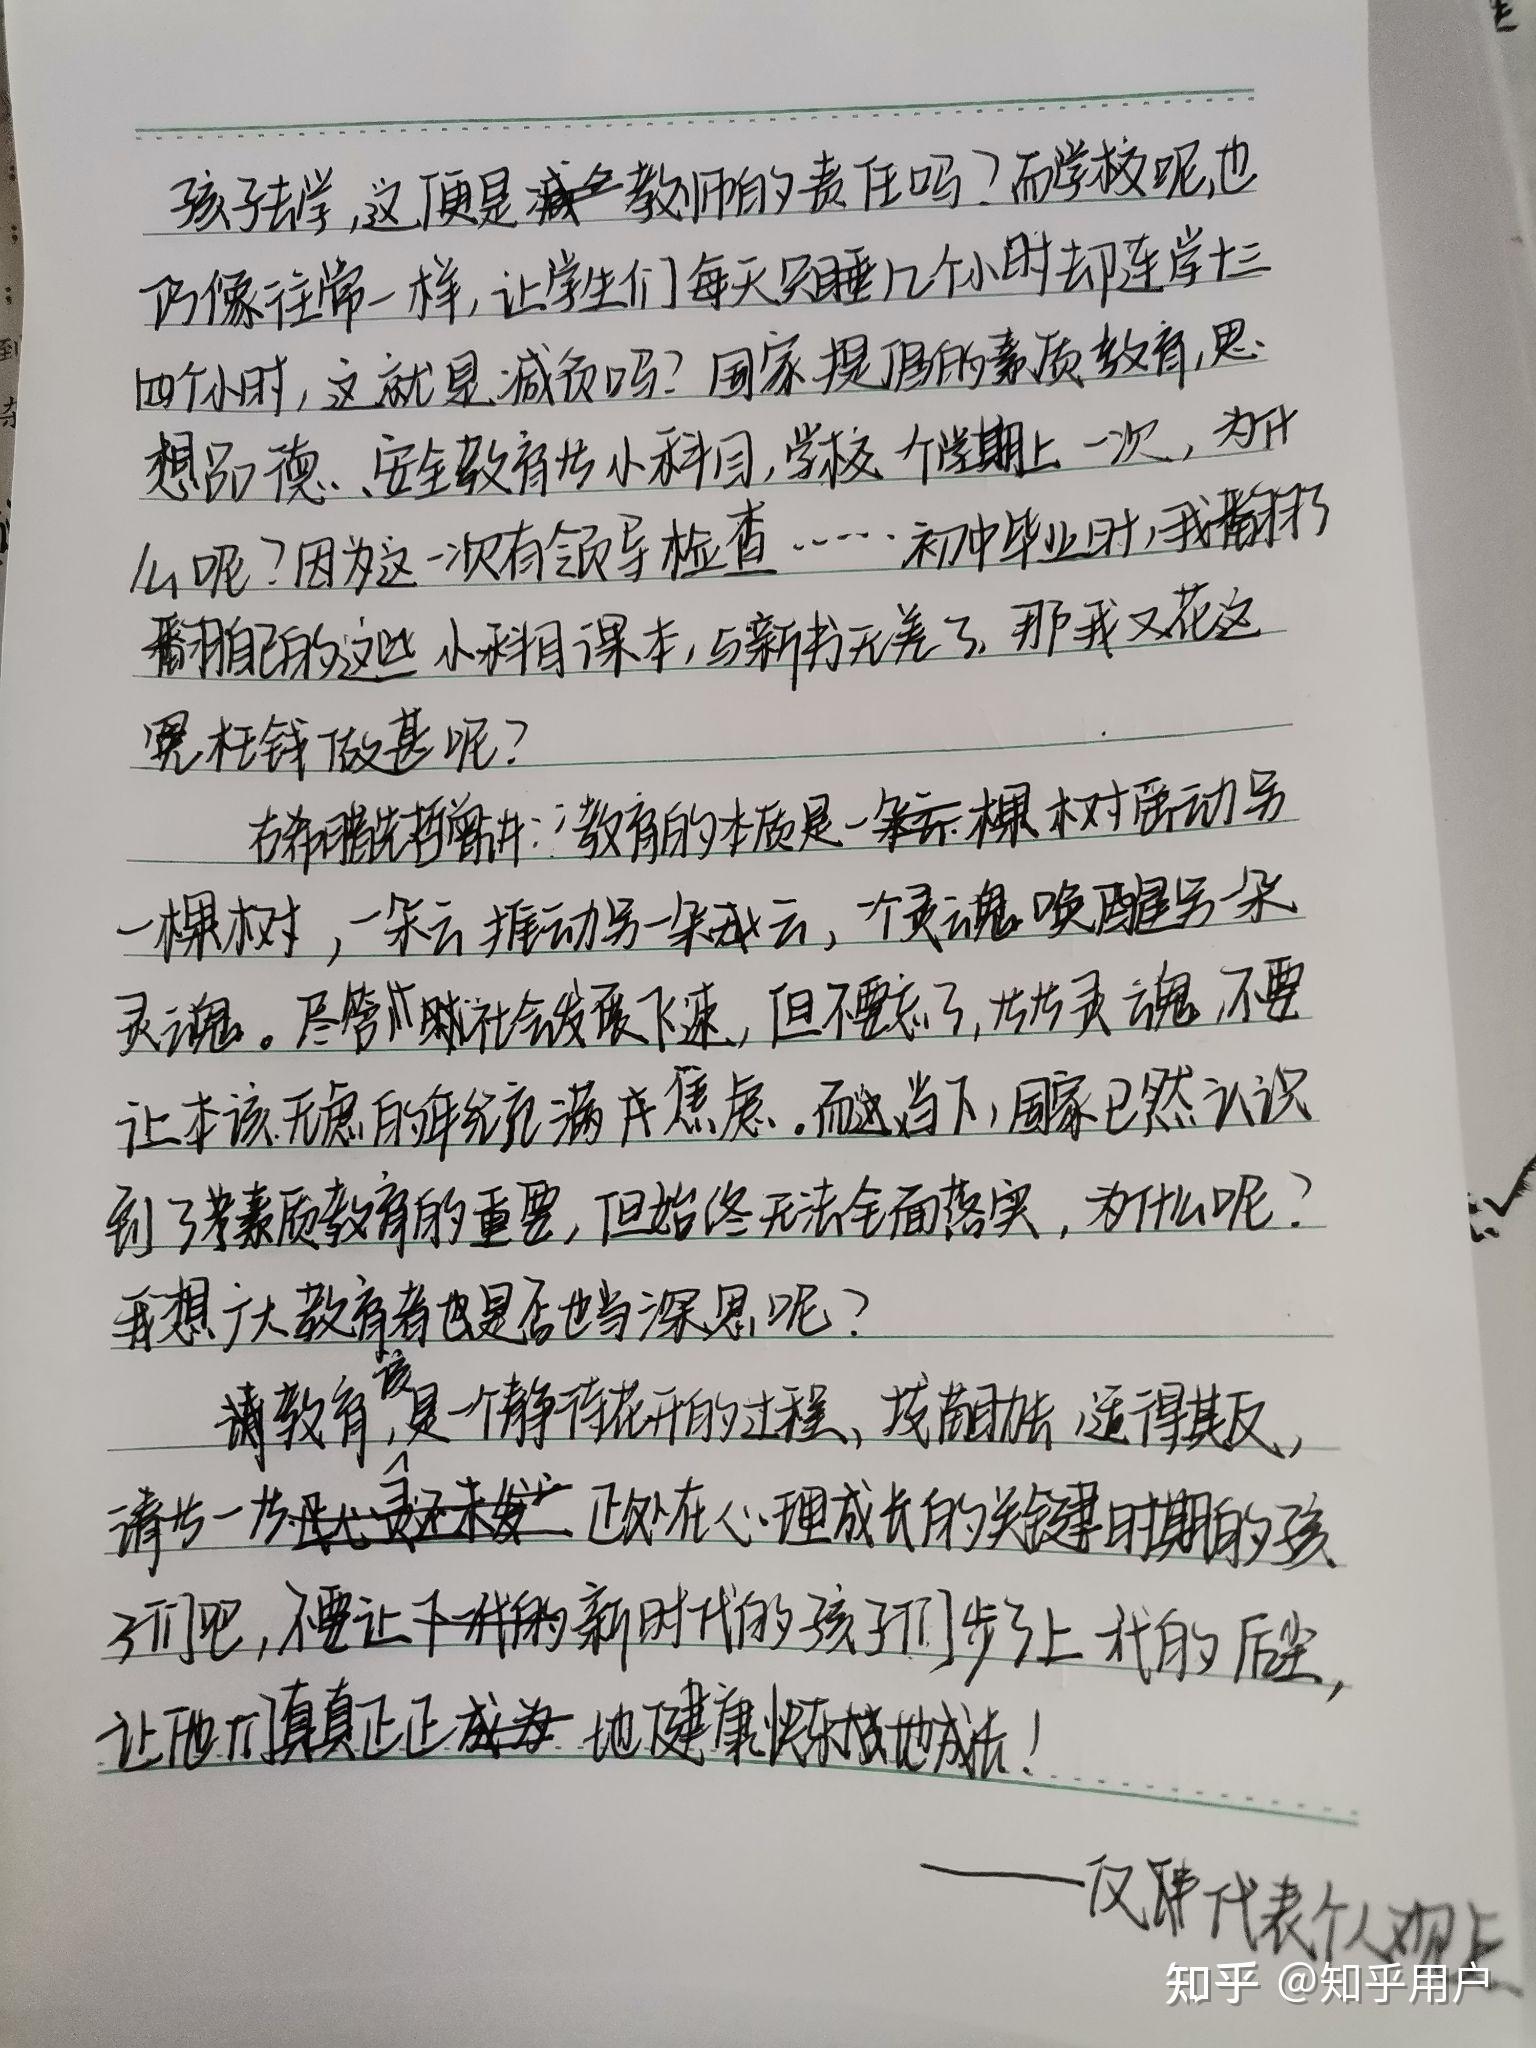 孩子去学,这便是教师的责任吗?而学校呢,也
仍像往常一样,让学生们每天只睡几个小时却连学十三
四个小时,这就是减负吗?国家提倡的素质教育,思
想品德、安全教育等小科目,学校一个学期上一次,为什
么呢?因为这一次有领导检查……初中毕业时,我翻了
翻自己的这些小科目课本,与新书无差了,那我又花这
冤枉钱做甚呢?
古希腊先哲曾讲:“教育的本质是一棵树摇动另
一棵树,一朵云推动另一朵云,一个灵魂唤醒另一朵
灵魂。尽管社会发展飞速,但不要忘了,等等灵魂,不要
让本该无虑的年纪充满焦虑。而当下,国家已然认识
到了素质教育的重要,但始终无法全面落实,为什么呢?
我想广大教育者是否也当深思呢?
教育,该是一个静待花开的过程、拔苗助长,适得其反,
请等一等正处在心理成长的关键时期的孩
子们吧,不要让新时代的孩子们步了上一代的后尘,
让他们真真正正地健康快乐地成长!
——仅代表个人观点
知乎 @知乎用户